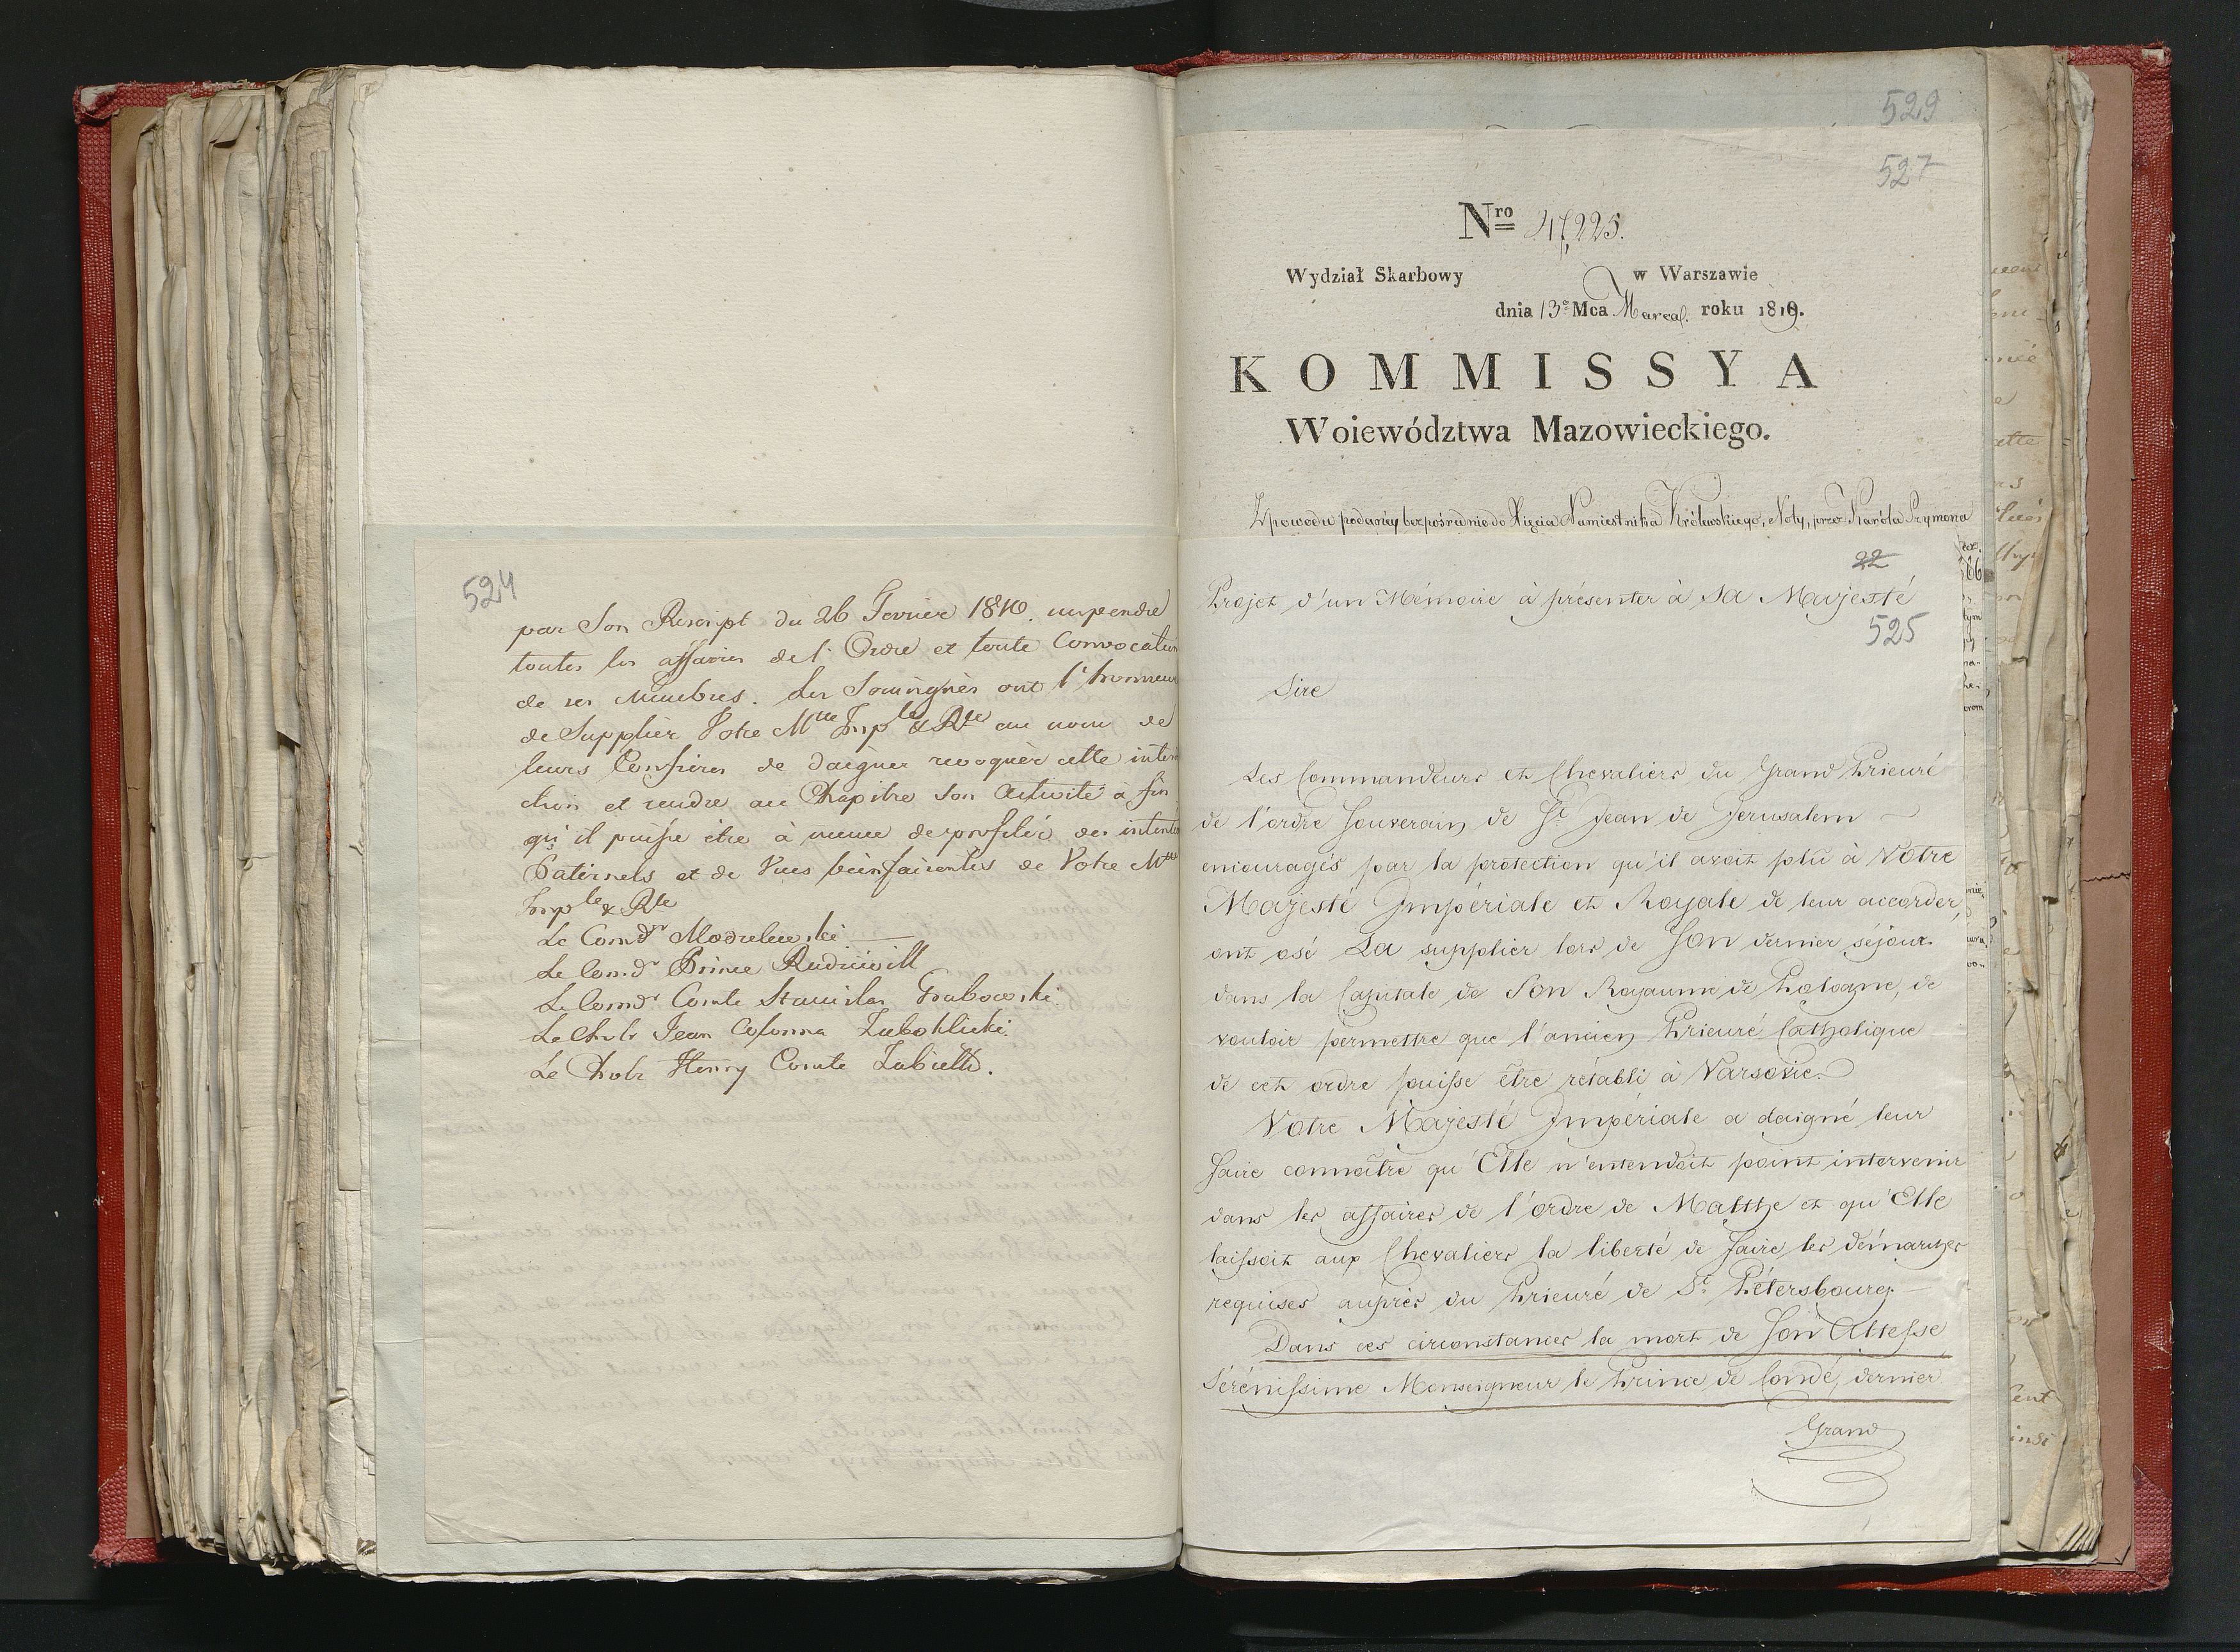 524
par Son Rescript du 26 Fevrier 1810. suspendre
toutes les affaires de l'Ordre et toute Convocation
de ses Membres. Les Soussignés ont l'honneur
de Supplier Votre Mtte Imple & Rle au nom de
leurs Confrères de daigner revoquer cette interdi
ction et rendre au Chapitre son Activité à fin
qu'il puisse être à meme de profiter des intentions
Paternels et de Vues bienfaisantes de Votre Mtte
Imple & Rle
Le Comdr Modzelewski
Le Comdr Prince Radziwill
Le Comdr Comte Stanislas Grabowski
Le Chvlr Jean Colonna
Le Chvlr Henry Comte
529
527
Nro 47225.
Wydział Skarbowy w Warszawie
dnia 13o Mca Marca roku 1819.
KOMMISSYA
Woiewództwa Mazowieckiego.
Z powodu podanéy bezpośrednio do Xięcia Namiestnika Królewskiego, Noty, przez Karóla Szymona
22
Projet d'un Mémoire à présenter à Sa Majesté
525
Sire
Les Commandeurs et Chevaliers du Grand Prieuré
de l'ordre Souverain de St Jean de Jerusalem
encouragés par la protection qu'il avoit plû à Votre
Majesté Impériale et Royale de leur accorder,
ont osé La supplier lors de Son dernier séjour
dans la Capitale de Son Royaume de Pologne, de
vouloir permettre que l'ancien Prieuré Catholique
de cet ordre puisse être rétabli à Varsovie.
Votre Majesté Impériale a daigné leur
faire connaître qu'Elle n'entendoit point intervenir
dans les affaires de l'ordre de Malthe et qu'Elle
laissoit aux Chevaliers la liberté de faire les démarches
requises auprès du Prieuré de St Pétersbourg.
Dans ces circonstances la mort de Son Altesse
Sérénissime Monseigneur le Prince de Condé, dernier
Grand